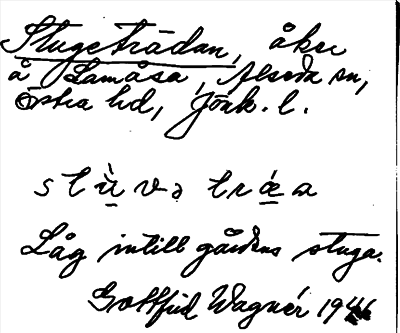 Stugeträdan, åker
å Lamåsa, Alseda sn,
Östra hd, Jönk. l.
stù̱və trǽ̱a
Låg intill gårdens stuga.
Gottfrid Wagnér 194